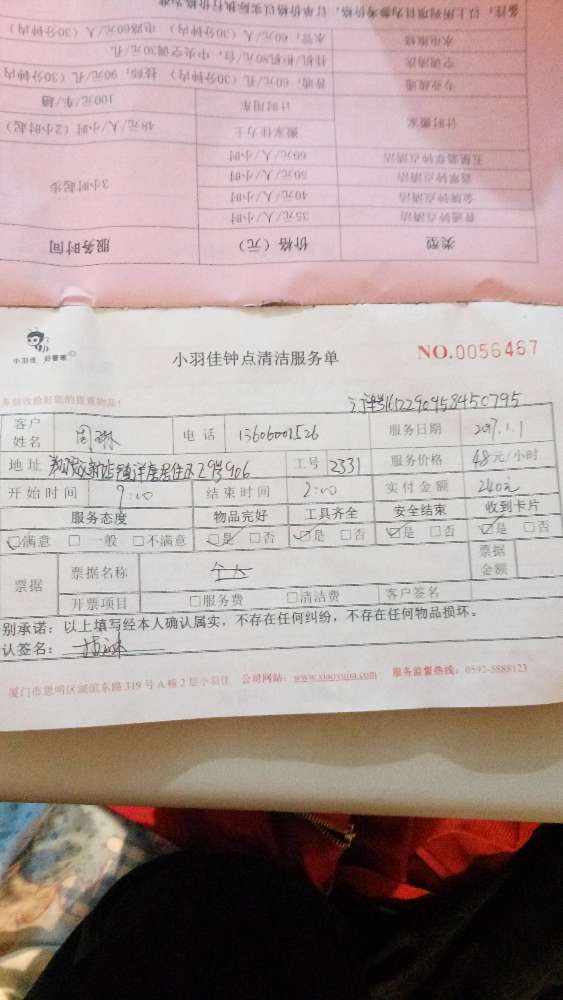 备注：以上所列项目为参考价格，订单价格以实际执行价格为准
水电维修 水管，60元/人（30分钟内） 电路60元/人（30分钟内）
空调清洗 挂机/柜机80元/台，中央空调30元/孔
专业疏通 普通，60元/孔（30分钟内） 技师，90元/孔（30分钟内）
计时搬家 计时用车 100元/车/趟
搬家佳力士 48元/人/小时（2小时起）
五星翡翠钟点清洁 60元/人/小时
翡翠钟点清洁 50元/人/小时
金牌钟点清洁 40元/人/小时
普通钟点清洁 35元/人/小时 3小时起步
类型 价格（元） 服务时间
小羽佳 好管家
小羽佳钟点清洁服务单
NO.0056467
务前收拾好您的贵重物品！
客户姓名 周琳 电话 13606001526 服务日期 2017.1.1
地址 工号 2331 服务价格 48元/小时
开始时间 9:00 结束时间 2:00 实付金额 240元
服务态度 物品完好 工具齐全 安全结束 收到卡片
满意 一般 不满意 是 否 是 否 是 否 是 否
票据 票据名称 票据金额
开票项目 服务费 清洁费 客户签名
别承诺：以上填写经本人确认属实，不存在任何纠纷，不存在任何物品损坏。
认签名：
厦门市思明区湖滨东路319号A栋2层小羽佳 公司网站：www.xiaoyujia.com 服务监督热线：0592-5888123